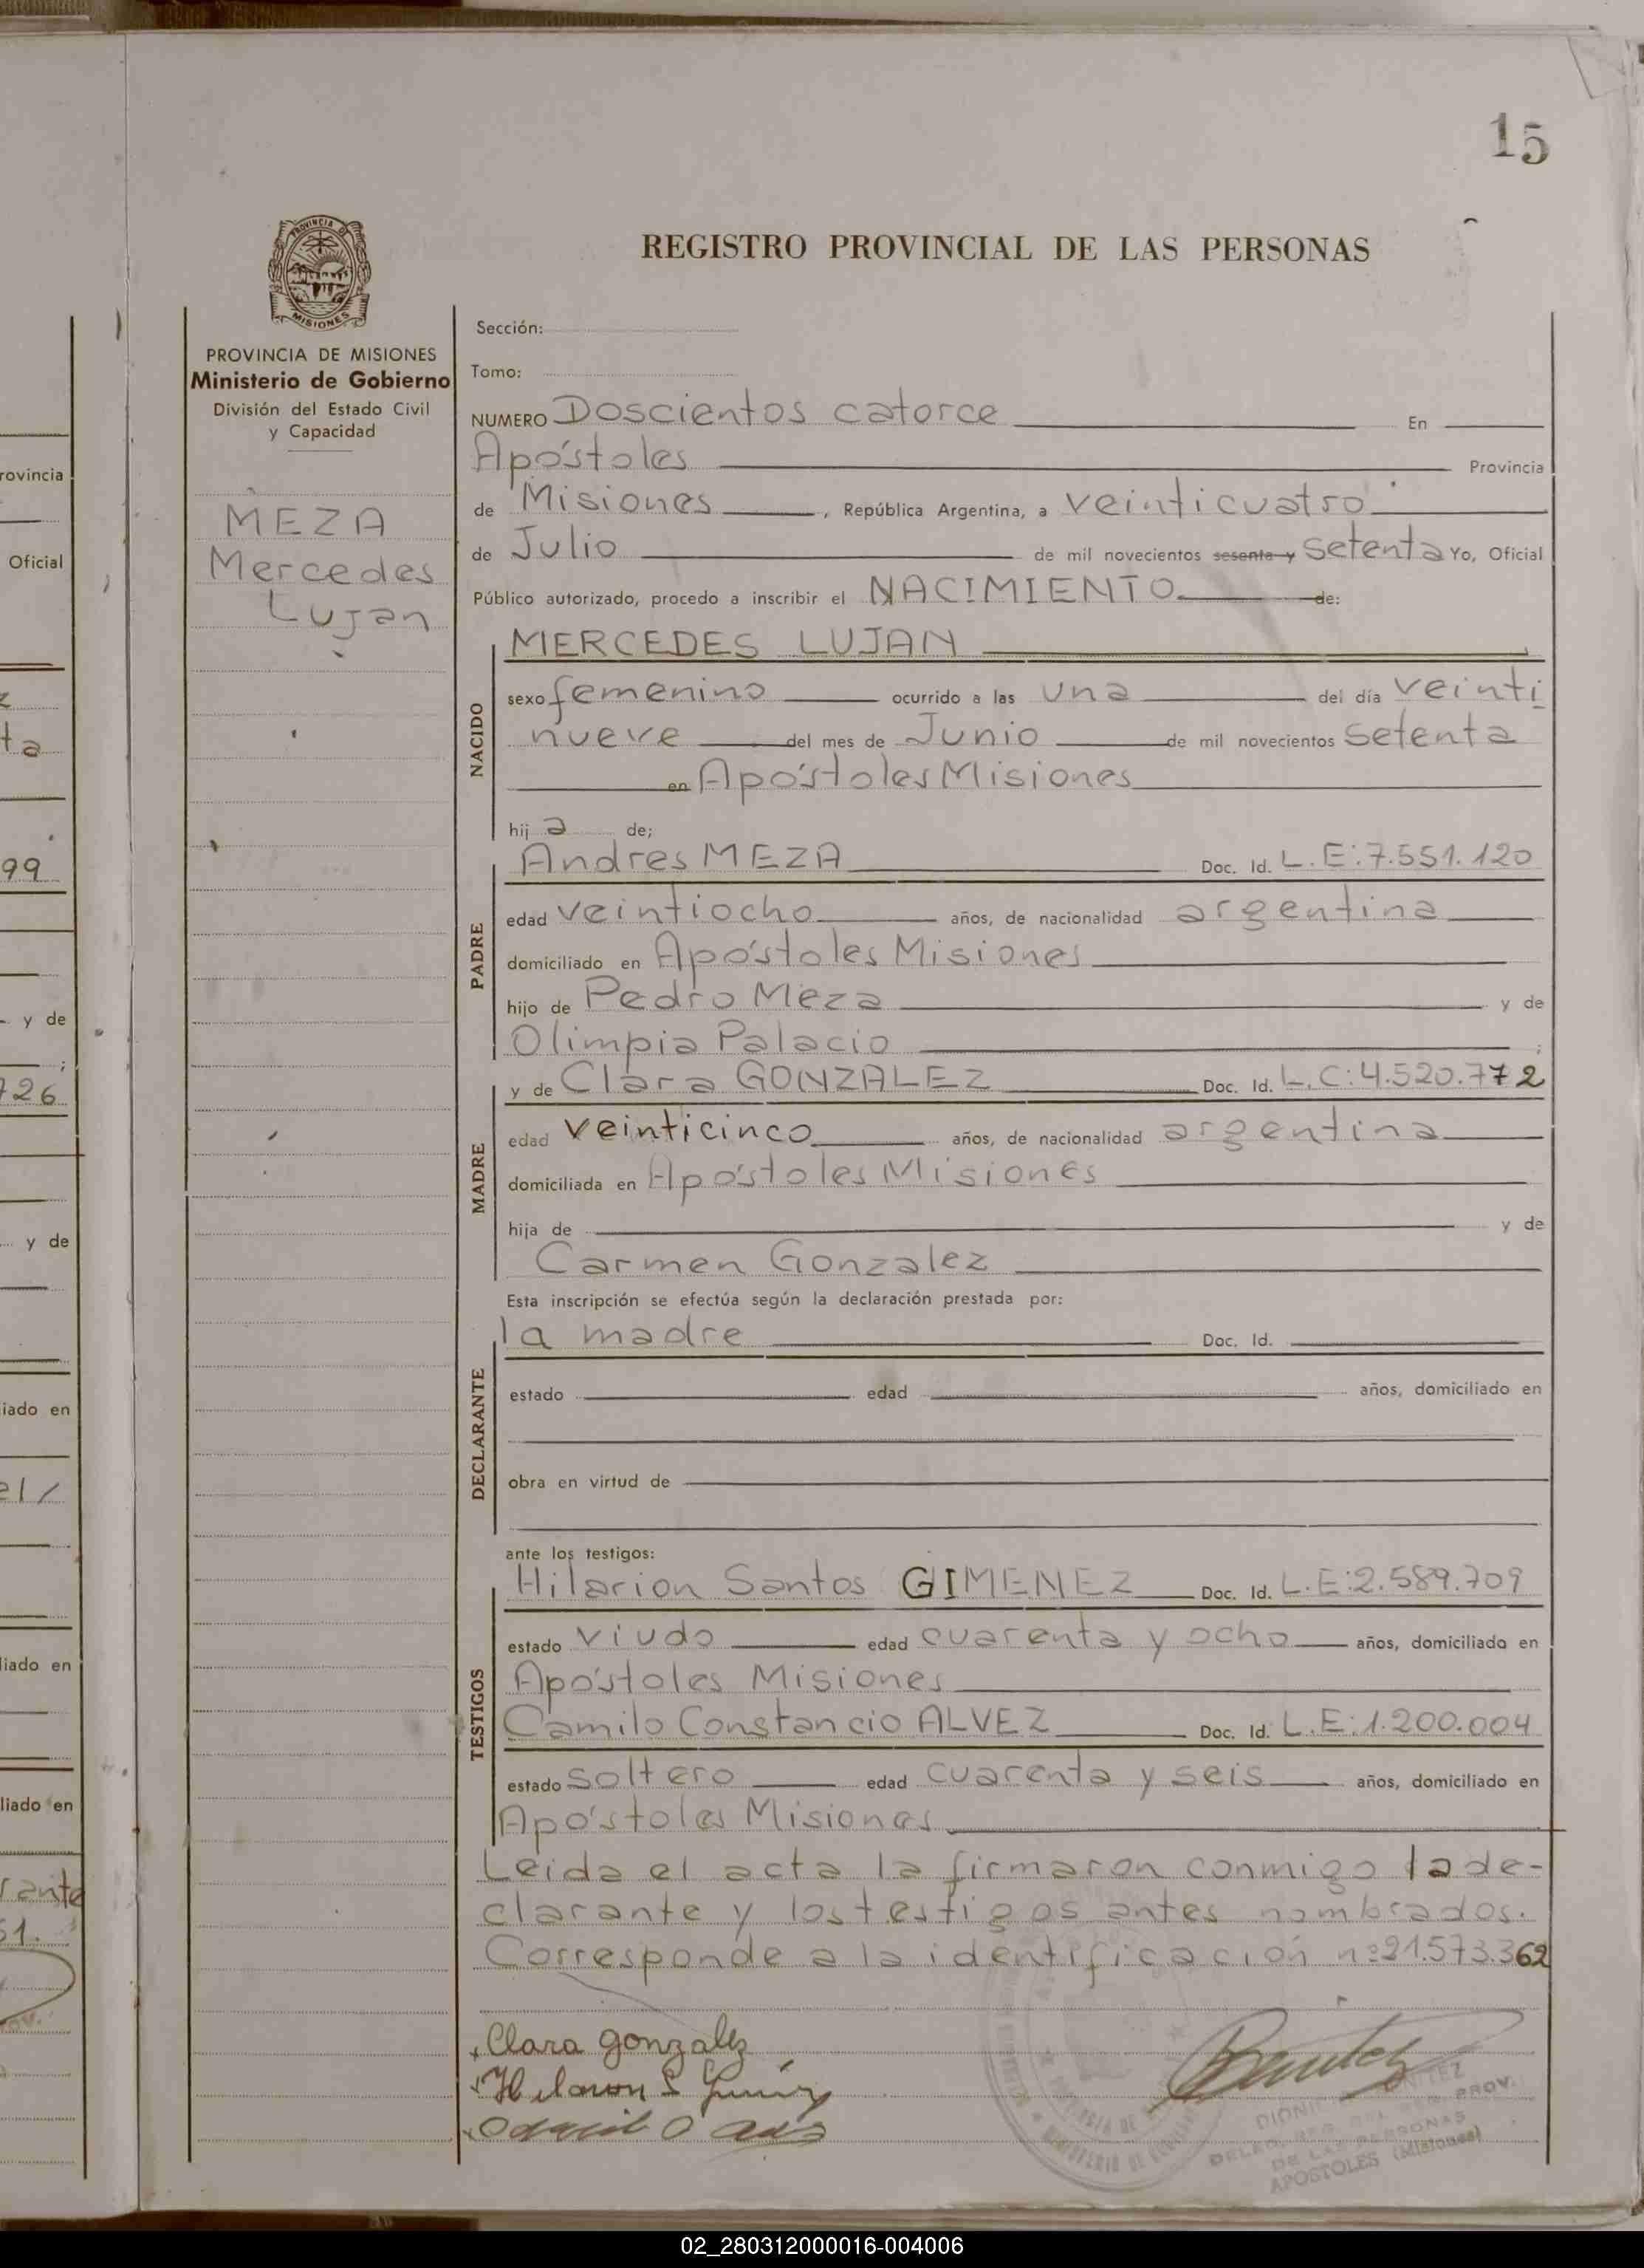 15
PROVINCIA DE
MISIONES
REGISTRO PROVINCIAL DE LAS PERSONAS
PROVINCIA DE MISIONES
Ministerio de Gobierno
División del Estado Civil
y Capacidad
MEZA
Mercedes
Lujan
Sección:
Tomo:
NUMERO Doscientos catorce En
Apóstoles Provincia
de Misiones, República Argentina, a veinticuatro
de Julio de mil novecientos sesenta y setenta Yo, Oficial
Público autorizado, procedo a inscribir el NACIMIENTO de:
NACIDO
MERCEDES LUJAN
sexo femenino ocurrido a las una del día veinti
nueve del mes de Junio de mil novecientos setenta
en Apóstoles Misiones
hij a de;
PADRE
Andres MEZA Doc. Id. L.E:7.551.120
edad veintiocho años, de nacionalidad argentina
domiciliado en Apóstoles Misiones
hijo de Pedro Meza y de
Olimpia Palacio ;
MADRE
y de Clara GONZALEZ Doc. Id. L.C:4.520.772
edad veinticinco años, de nacionalidad argentina
domiciliada en Apóstoles Misiones
hija de y de
Carmen Gonzalez
Esta inscripción se efectúa según la declaración prestada por:
DECLARANTE
la madre Doc. Id.
estado edad años, domiciliado en
obra en virtud de
ante los testigos:
TESTIGOS
Hilarion Santos GIMENEZ Doc. Id. L.E:2.589.709
estado viudo edad cuarenta y ocho años, domiciliado en
Apóstoles Misiones
Camilo Constancio ALVEZ Doc. Id. L.E:1.200.004
estado soltero edad cuarenta y seis años, domiciliado en
Apóstoles Misiones
Leida el acta la firmaron conmigo la de-
clarante y los testigos antes nombrados.
Corresponde a la identificación nº21.573.362
Clara gonzalez
Hilarion S
Benitez
DE LAS PERSONAS
APOSTOLES (Misiones)
rovincia
Oficial
ta
99
y de
726
y de
iado en
el/
liado en
liado en
rante
51.
02_280312000016-004006